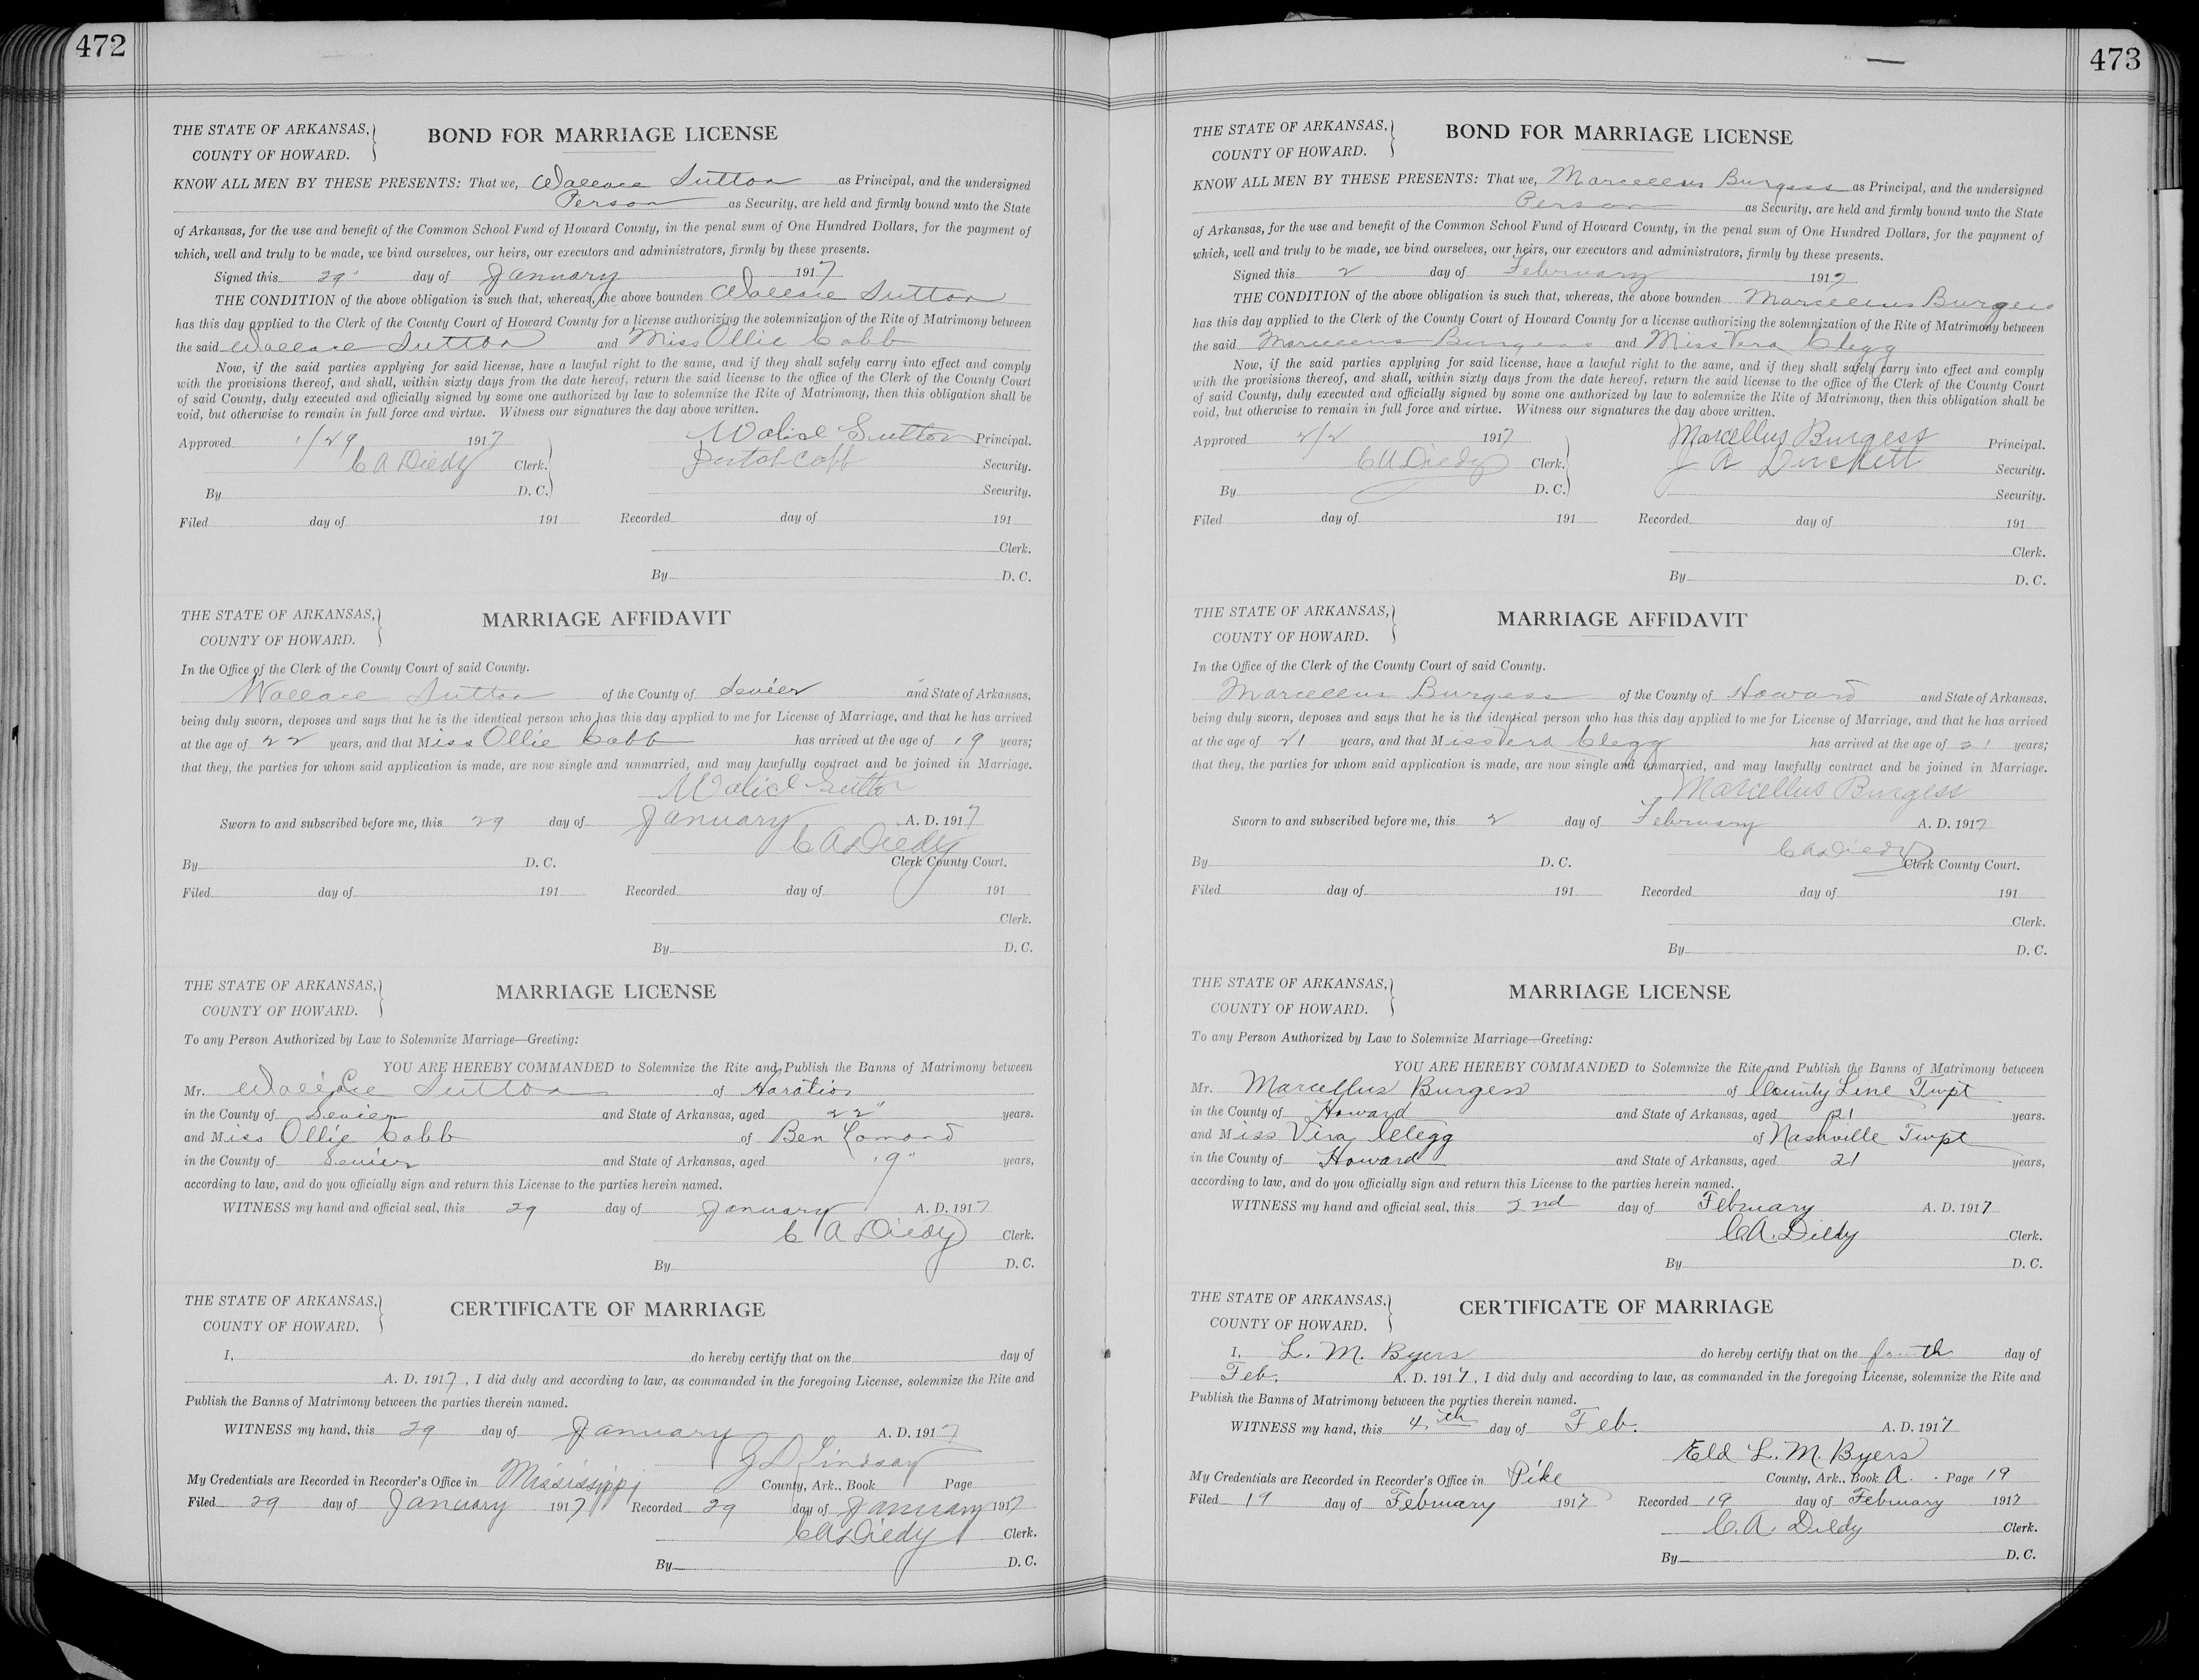 472
THE STATE OF ARKANSAS,
COUNTY OF HOWARD.
BOND FOR MARRIAGE LICENSE
KNOW ALL MEN BY THESE PRESENTS: That we, Wallace Sutton as Principal, and the undersigned
Person as Security, are held and firmly bound unto the State
of Arkansas, for the use and benefit of the Common School Fund of Howard County, in the penal sum of One Hundred Dollars, for the payment of
which, well and truly to be made, we bind ourselves, our heirs, our executors and administrators, firmly by these presents.
Signed this 29 day of January 1917
THE CONDITION of the above obligation is such that, whereas, the above bounden Wallace Sutton
has this day applied to the Clerk of the County Court of Howard County for a license authorizing the solemnization of the Rite of Matrimony between
the said Wallace Sutton and Miss Ollie Cobb
Now, if the said parties applying for said license, have a lawful right to the same, and if they shall safely carry into effect and comply
with the provisions thereof, and shall, within sixty days from the date hereof, return the said license to the office of the Clerk of the County Court
of said County, duly executed and officially signed by some one authorized by law to solemnize the Rite of Matrimony, then this obligation shall be
void, but otherwise to remain in full force and virtue. Witness our signatures the day above written.
Approved 1/29 1917 Walice Sutton Principal.
C A Dildy Clerk. Cobb Security.
By D. C. Security.
Filed day of 191 Recorded day of 191
Clerk.
By D. C.
THE STATE OF ARKANSAS,
COUNTY OF HOWARD.
MARRIAGE AFFIDAVIT
In the Office of the Clerk of the County Court of said County.
Wallace Sutton of the County of Sevier and State of Arkansas,
being duly sworn, deposes and says that he is the identical person who has this day applied to me for License of Marriage, and that he has arrived
at the age of 22 years, and that Miss Ollie Cobb has arrived at the age of 19 years;
that they, the parties for whom said application is made, are now single and unmarried, and may lawfully contract and be joined in Marriage.
Walice Sutton
Sworn to and subscribed before me, this 29 day of January A. D. 1917
C A Dildy
By D. C. Clerk County Court.
Filed day of 191 Recorded day of 191
Clerk.
By D. C.
THE STATE OF ARKANSAS,
COUNTY OF HOWARD.
MARRIAGE LICENSE
To any Person Authorized by Law to Solemnize Marriage—Greeting:
YOU ARE HEREBY COMMANDED to Solemnize the Rite and Publish the Banns of Matrimony between
Mr. Wallace Sutton of Horatio
in the County of Sevier and State of Arkansas, aged 22 years.
and Miss Ollie Cobb of Ben Lomond
in the County of Sevier and State of Arkansas, aged 19 years,
according to law, and do you officially sign and return this License to the parties herein named.
WITNESS my hand and official seal, this 29 day of January A. D. 1917
C A Dildy Clerk.
By D. C.
THE STATE OF ARKANSAS,
COUNTY OF HOWARD.
CERTIFICATE OF MARRIAGE
I, do hereby certify that on the day of
A. D. 1917, I did duly and according to law, as commanded in the foregoing License, solemnize the Rite and
Publish the Banns of Matrimony between the parties therein named.
WITNESS my hand, this 29 day of January A. D. 1917
J D Lindsay
My Credentials are Recorded in Recorder's Office in Mississippi County, Ark., Book Page
Filed 29 day of January 1917 Recorded 29 day of January 1917
C A Dildy Clerk.
By D. C.
473
THE STATE OF ARKANSAS,
COUNTY OF HOWARD.
BOND FOR MARRIAGE LICENSE
KNOW ALL MEN BY THESE PRESENTS: That we, Marcellus Burgess as Principal, and the undersigned
Person as Security, are held and firmly bound unto the State
of Arkansas, for the use and benefit of the Common School Fund of Howard County, in the penal sum of One Hundred Dollars, for the payment of
which, well and truly to be made, we bind ourselves, our heirs, our executors and administrators, firmly by these presents.
Signed this 2 day of February 1917
THE CONDITION of the above obligation is such that, whereas, the above bounden Marcellus Burgess
has this day applied to the Clerk of the County Court of Howard County for a license authorizing the solemnization of the Rite of Matrimony between
the said Marcellus Burgess and Miss Vera Clegg
Now, if the said parties applying for said license, have a lawful right to the same, and if they shall safely carry into effect and comply
with the provisions thereof, and shall, within sixty days from the date hereof, return the said license to the office of the Clerk of the County Court
of said County, duly executed and officially signed by some one authorized by law to solemnize the Rite of Matrimony, then this obligation shall be
void, but otherwise to remain in full force and virtue. Witness our signatures the day above written.
Approved 2/2 1917 Marcellus Burgess Principal.
C A Dildy Clerk. J A Duckett Security.
By D. C. Security.
Filed day of 191 Recorded day of 191
Clerk.
By D. C.
THE STATE OF ARKANSAS,
COUNTY OF HOWARD.
MARRIAGE AFFIDAVIT
In the Office of the Clerk of the County Court of said County.
Marcellus Burgess of the County of Howard and State of Arkansas,
being duly sworn, deposes and says that he is the identical person who has this day applied to me for License of Marriage, and that he has arrived
at the age of 21 years, and that Miss Vera Clegg has arrived at the age of 21 years;
that they, the parties for whom said application is made, are now single and unmarried, and may lawfully contract and be joined in Marriage.
Marcellus Burgess
Sworn to and subscribed before me, this 2 day of February A. D. 1917
C A Dildy
By D. C. Clerk County Court.
Filed day of 191 Recorded day of 191
Clerk.
By D. C.
THE STATE OF ARKANSAS,
COUNTY OF HOWARD.
MARRIAGE LICENSE
To any Person Authorized by Law to Solemnize Marriage—Greeting:
YOU ARE HEREBY COMMANDED to Solemnize the Rite and Publish the Banns of Matrimony between
Mr. Marcellus Burgess of County Line Twpt
in the County of Howard and State of Arkansas, aged 21 years.
and Miss Vera Clegg of Nashville Twpt
in the County of Howard and State of Arkansas, aged 21 years,
according to law, and do you officially sign and return this License to the parties herein named.
WITNESS my hand and official seal, this 2nd day of February A. D. 1917
C. A. Dildy Clerk.
By D. C.
THE STATE OF ARKANSAS,
COUNTY OF HOWARD.
CERTIFICATE OF MARRIAGE
I, L. M. Byers do hereby certify that on the fourth day of
Feb. A. D. 1917, I did duly and according to law, as commanded in the foregoing License, solemnize the Rite and
Publish the Banns of Matrimony between the parties therein named.
WITNESS my hand, this 4th day of Feb. A. D. 1917
Eld L. M. Byers
My Credentials are Recorded in Recorder's Office in Pike County, Ark., Book A. Page 19
Filed 19 day of February 1917 Recorded 19 day of February 1917
C. A. Dildy Clerk.
By D. C.